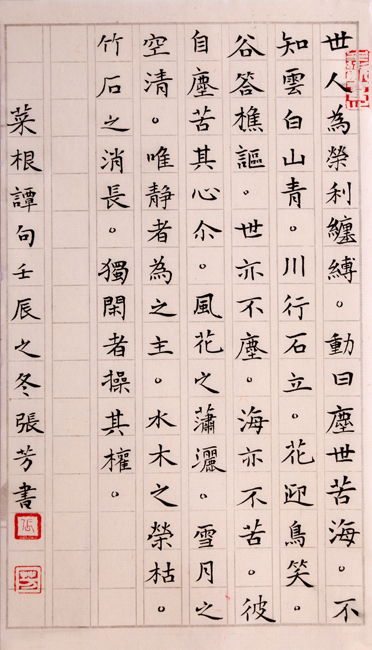 世人為榮利纏縛。動曰塵世苦海。不
知雲白山青。川行石立。花迎鳥笑。
谷答樵謳。世亦不塵。海亦不苦。彼
自塵苦其心尒。風花之瀟灑。雪月之
空清。唯靜者為之主。水木之榮枯。
竹石之消長。獨閑者操其權。
菜根譚句壬辰之冬張芳書